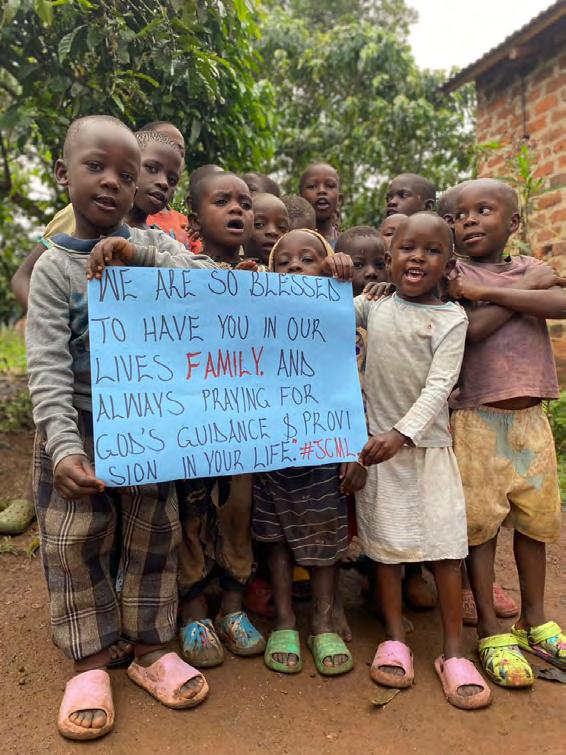 WE ARE SO BLESSED
TO HAVE YOU IN OUR
LIVES FAMILY. AND
ALWAYS PRAYING FOR
GOD'S GUIDANCE & PROVI
SION IN YOUR LIFE." #JCML